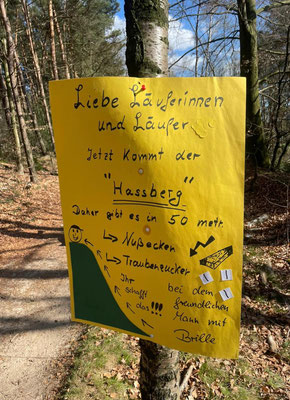 Liebe Läuferinnen
und Läufer
Jetzt kommt der
"Hassberg"
Daher gibt es in 50 metr.
↳ Nußecken
↳ Traubenzucker
Ihr
schafft
das!!!
bei dem
freundlichen
Mann mit
Brille